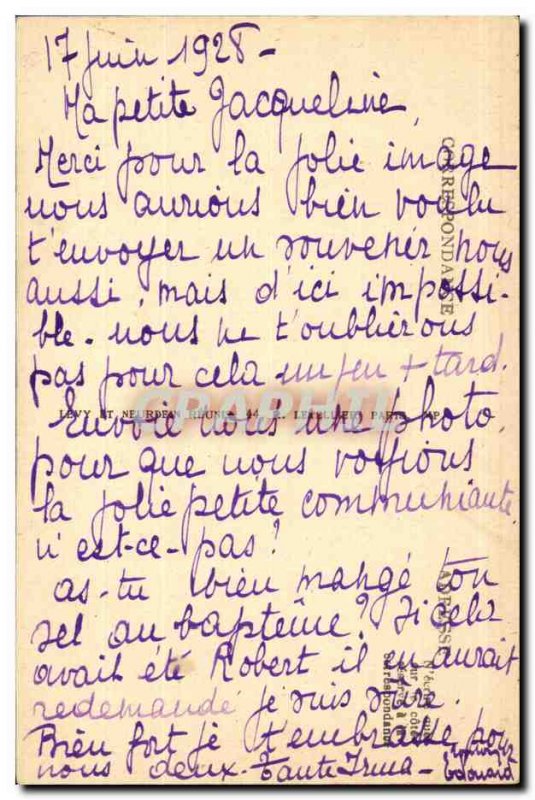 17 juin 1928 -
Ma petite Jacqueline,
Merci pour la jolie image
nous aurions bien voulu
t'envoyer un souvenir nous
aussi, mais d'ici impossi-
ble. nous ne t'oublierons
pas pour cela un peu + tard.
Envoie nous une photo,
pour que nous voyions
la jolie petite communiante
n'est-ce-pas?
as-tu bien mangé ton
sel au baptême? Si cela
avait été Robert il en aurait
redemandé je suis sûre.
Bien fort je t'embrasse pour
nous deux. Tante Irma -
Edouard
CORRESPONDANCE
LÉVY ET NEURDEIN RÉUNIS, 44, R. LETELLIER, PARIS
ADRESSE
DELCAMPE